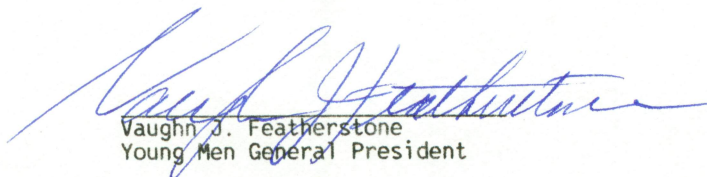 Vaughn J. Featherstone
Vaughn J. Featherstone
Young Men General President